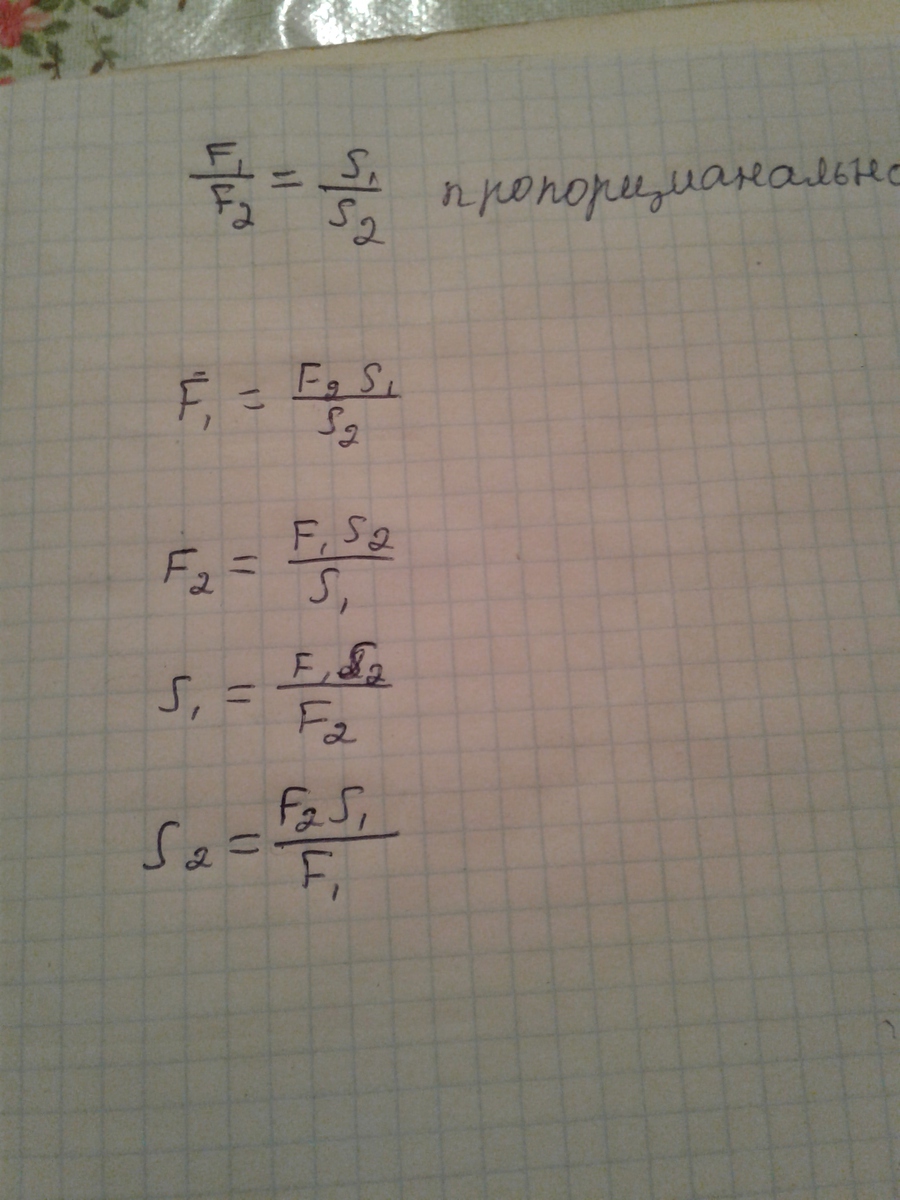 F₁/F₂ = S₁/S₂ пропорцианально
F₁ = F₂ S₁/S₂
F₂ = F₁ S₂/S₁
S₁ = F₁ S₂/F₂
S₂ = F₂ S₁/F₁